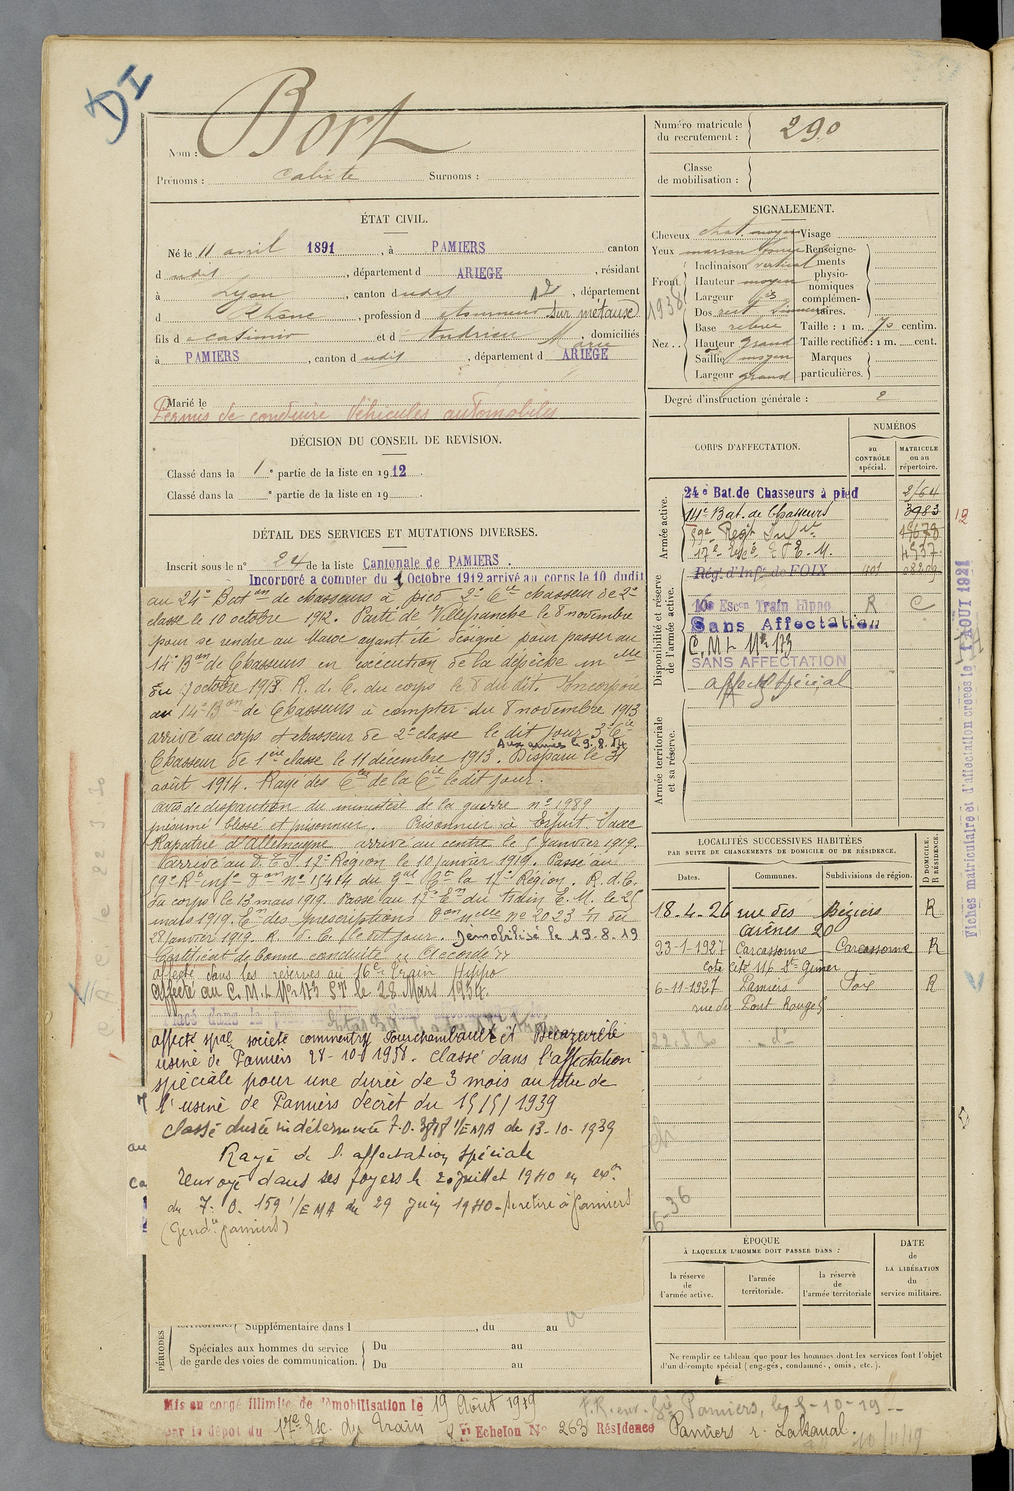 DI
Nom : Bort
Prénoms : Calixte Surnoms :
Numéro matricule du recrutement : 290
Classe de mobilisation :
ÉTAT CIVIL.
Né le 11 avril 1891, à PAMIERS canton
d udit, département d ARIEGE, résidant
à Lyon, canton dudit, département
d Rhône, profession d tourneur sur métaux 12
fils d e Casimir et d Andrieu Marie domiciliés
à PAMIERS, canton d udit, département d ARIEGE
Marié le
Permis de conduire Véhicules automobiles
DÉCISION DU CONSEIL DE REVISION.
Classé dans la 1e partie de la liste en 1912
Classé dans la e partie de la liste en 19
DÉTAIL DES SERVICES ET MUTATIONS DIVERSES.
Inscrit sous le n° 24 de la liste Cantonale de PAMIERS.
Incorporé a compter du 1 Octobre 1912 arrivé au corps le 10 dudit
au 24e Baton de chasseurs à pied 2e Cie chasseur de 2e
classe le 10 octobre 1912. Parti de Villefranche le 8 novembre
pour se rendre au Maroc ayant été désigné pour passer au
14e Bon de Chasseurs en exécution de la dépêche mlle
du 7 octobre 1913. R. d. C. du corps le 8 du dit. Incorporé
au 14e Bon de Chasseurs à compter du 8 novembre 1913
arrivé au corps et chasseur de 2e classe le dit jour 3e Cie
Aux armées le 9.8.14
Chasseur de 1ère classe le 11 décembre 1913. Disparu le 31
août 1914. Rayé des Ces de la Cie le dit jour.
avis de disparition du ministère de la guerre no 1989
présumé blessé et prisonnier. Prisonnier à Erfurt Saxe
Rapatrié d'allemagne arrivé au centre le 5 janvier 1919.
arrivé au D.T.I. 12e Région le 10 janvier 1919. Passé au
59e Rt infie Don no 15414 du gal Ct la 17e Région. R. d. C.
du corps le 13 mars 1919. Passé au 17e En du train E.M. le 25
mars 1919. En des prescriptions Don mlle no 2023 du
28 janvier 1919. R. d. C. le dit jour. Démobilisé le 19.8.19
Certificat de bonne conduite "Accordé"
affecté dans les reserves au 16e Train Hippo
Affecté au C.M.L. No 173 le 28 Mars 1934.
affecté spal societé commentry Fourchambault et Decazeville
usine de Pamiers 28-10-1938. classé dans l'affectation
spéciale pour une durée de 3 mois au titre de
l'usine de Pamiers décret du 15/5/1939
Classé durée indéterminée F.O. 3878 1/EMA du 13-10-1939
Rayé de l'affectation spéciale
renvoyé dans ses foyers le 20 juillet 1940 en exon
du 7.0. 159 1/EMA du 29 juin 1940- se retire à Pamiers
(Gendie Pamiers)
Supplémentaire dans l , du au
PÉRIODES
Spéciales aux hommes du service de garde des voies de communication. Du au
Du au
Mis en congé illimité de démobilisation le 19 Août 1919
par le dépôt du 17e Esc. du Train Echelon N° 263 Résidence Pamiers r. Lakanal.
F.R. Pamiers, le 5-10-19
SIGNALEMENT.
Cheveux chat. moyen Visage
Yeux marron foncé
Front Inclinaison vertical
Hauteur moyen
Largeur
Nez Dos rect. sinueux
Base relevée
Hauteur grand
Saillie moyen
Largeur grand
Renseignements physionomiques complémentaires.
Taille : 1 m. 70 centim.
Taille rectifiée : 1 m. cent.
Marques particulières.
1938
Degré d'instruction générale : 2
CORPS D'AFFECTATION.
NUMÉROS
au CONTRÔLE spécial.
MATRICULE ou au répertoire.
Armée active.
24e Bat. de Chasseurs à pied 2/64
14e Bat. de Chasseurs 3983
59e Regt Infie
17e Esce E.T.E.M. 4537
Disponibilité et réserve de l'armée active.
Rég. d'Infie de FOIX
16e Escon Train Hippo R C
Sans Affectation
C.M.L No 173
SANS AFFECTATION
affecté spécial
Armée territoriale et sa réserve.
LOCALITÉS SUCCESSIVES HABITÉES
PAR SUITE DE CHANGEMENTS DE DOMICILE OU DE RÉSIDENCE.
D DOMICILE. R RÉSIDENCE.
Dates. Communes. Subdivisions de région.
18-4-26 rue des Arènes 20 Béziers R
23-1-1927 Carcassonne Carcassonne R
cote cité 116 St Gimer
6-11-1927 Pamiers Foix R
rue du Pont Rouge 5
6-36
ÉPOQUE
À LAQUELLE L'HOMME DOIT PASSER DANS :
la réserve de l'armée active.
l'armée territoriale.
la réserve de l'armée territoriale
DATE de LA LIBÉRATION du service militaire.
Ne remplir ce tableau que pour les hommes dont les services font l'objet
d'un décompte spécial (engagés, condamnés, omis, etc.).
Fiches matriculaire et d'affectation créées le 1 AOÛT 1921
12